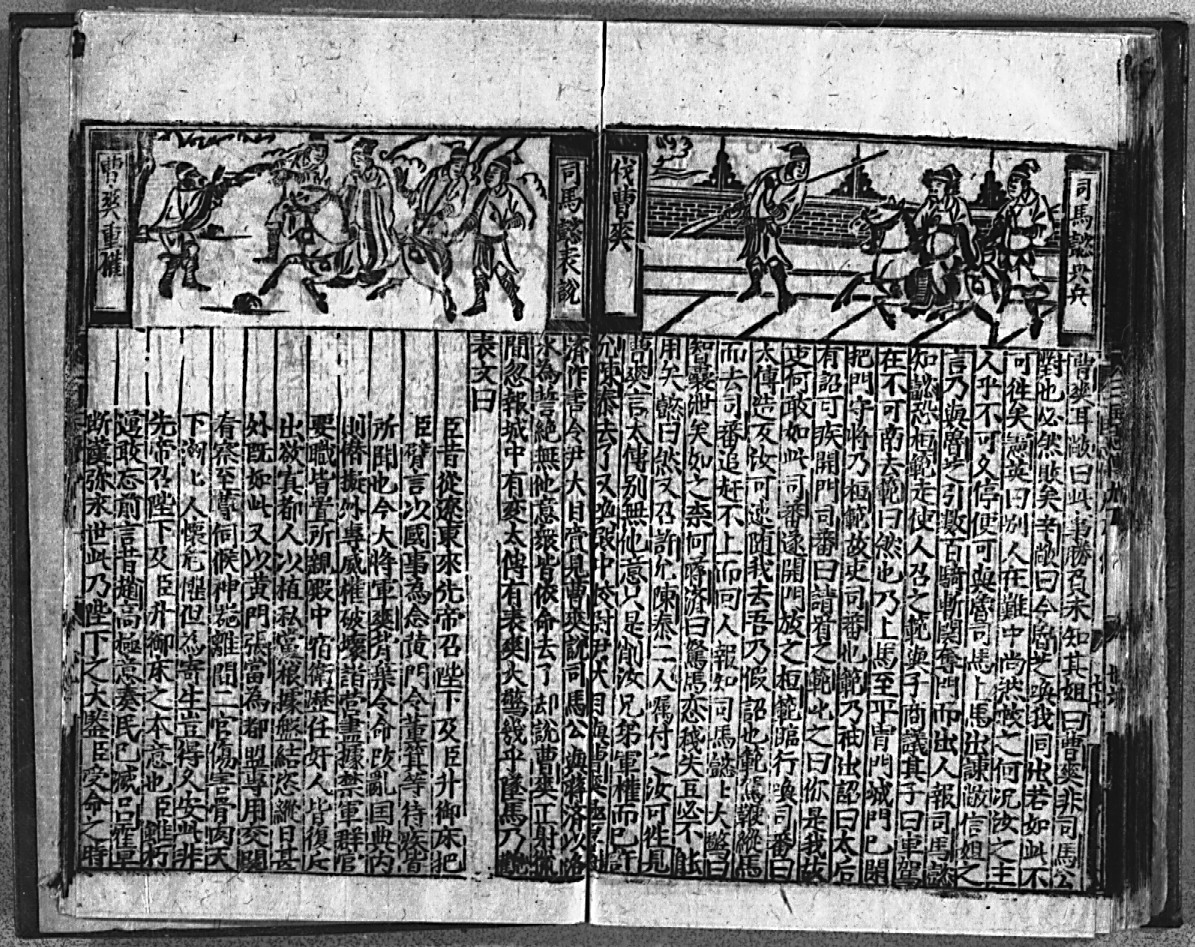 司馬懿興兵
伐曹爽
曹爽耳敞曰此事勝負未知其姐曰曹爽非司馬公
對也必然敗矣辛敞曰今魯芝喚我同出若如此不
可徃矣憲英曰別人在難中尚從救之何況汝之主
人乎不可久停便可與魯司馬上馬出諫敞信姐之
言乃與魯芝引數百騎斬関奪門而出人報司馬懿
知懿恐桓範走使人召之範與子商議其子曰車駕
在不可南去範曰然也乃上馬至平昌門城門已閉
把門守將乃桓範故吏司番也範乃袖出詔曰太后
有詔可疾開門司番曰請看之範叱之曰你是我故
吏何敢如此司番遂開門放之桓範臨行喚司番曰
太傅造反汝可速随我去吾乃假詔也範縱馬
而去司番追赶不上而回人報知司馬懿上大驚曰
智囊泄矣如之柰何蔣濟曰駑馬恋棧失豆必不能
用矣懿曰然又召許允陳泰二人囑付之汝可徃見
曹爽言太傅別無他意只是削汝兄弟軍權而已許
允陳泰去了又
司馬懿表說
曹爽重權
濟作書令尹大目賫見曹爽說司馬公與蔣濟以洛
水為誓絶無他意衆皆依命去了却說曹爽正射獵
間忽報城中有変太傅有表爽大驚幾乎墜馬乃
表文曰
臣昔從遼東來先帝召陛下及臣升御床把
臣臂言以國事為念黄門令董箕等侍疾皆
所聞也今大將軍爽背棄令命敗亂国典内
則僣擬外專威權破壞諸營盡據禁軍群官
要職皆置所親殿中宿衛歷任奸人皆復斥
出欲置都人以植私黨根據盤結恣縱日甚
外既如此又以黄門張當為都監專用交關
看察至尊伺候神器離間二宮傷害骨肉天
下洶比人懷危惧但為寄生豈得久安此非
先帝召陛下及臣升御床之本意也臣雖朽
邁敢忘前言昔趙高極意秦氏已滅吕霍早
斷漢祚永世此乃陛下之大鑒臣受命之時